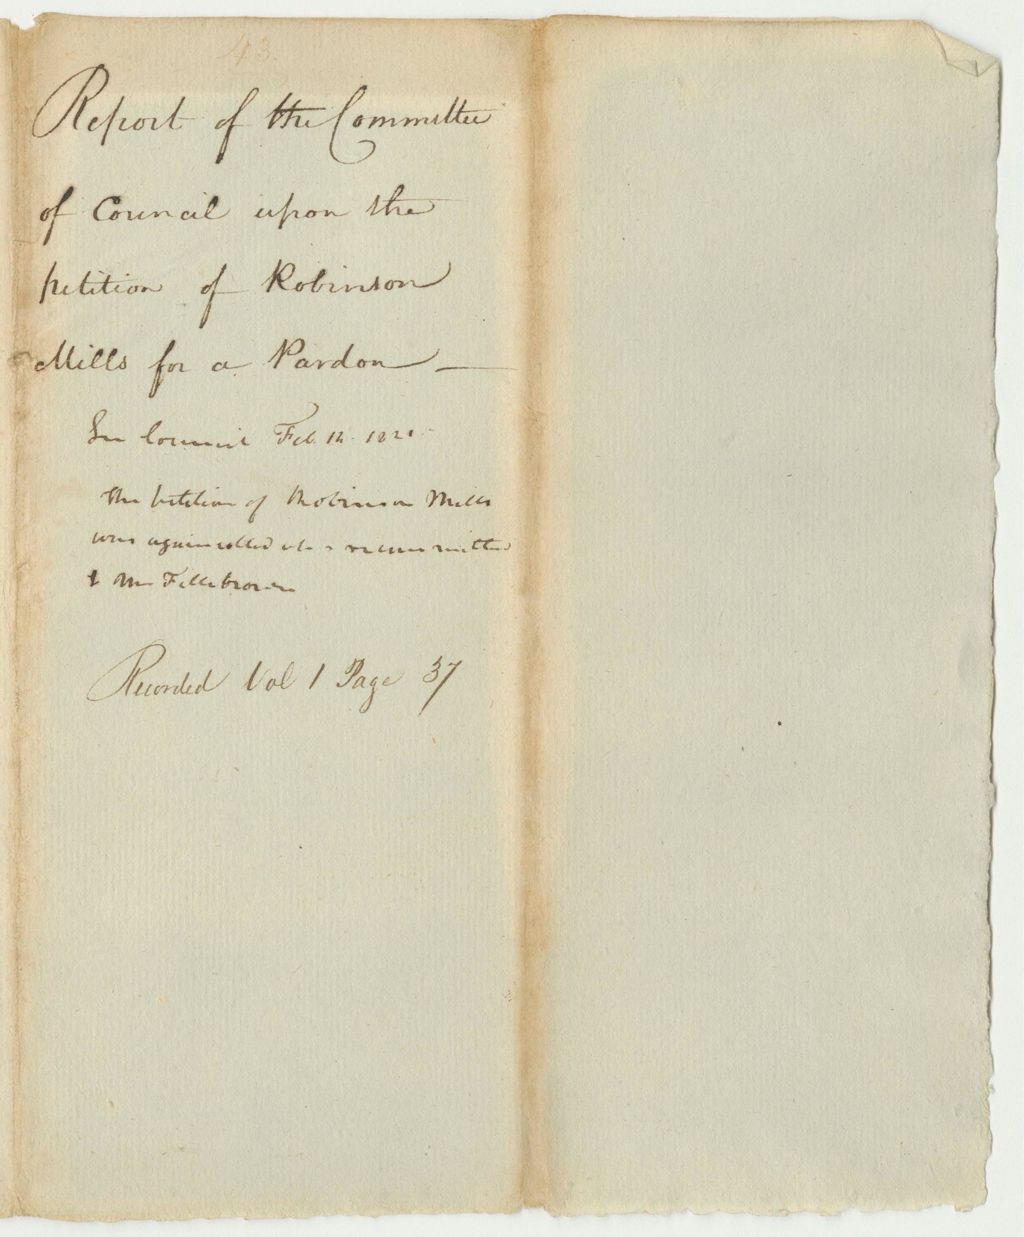 43.
Report of the Committee
of Council upon the
petition of Robinson
Mills for a Pardon —
In Council Feb. 14. 1821.
The petition of Robinson Mills
was again called up & recommitted
to Mr Fillebrown
Recorded Vol 1 Page 37